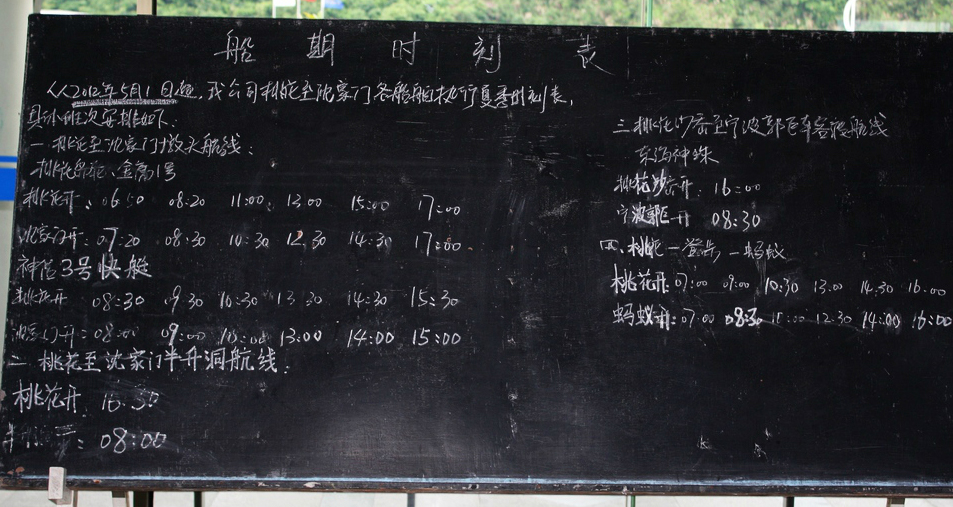 船期时刻表
从2012年5月1日起,我公司桃花至沈家门各船舶执行夏季时刻表,
具体班次安排如下:
一 桃花至沈家门 航线:
金富1号
桃花开: 06 50 08:20 11:00 13 00 15:00 17:00
沈家门开: 07:20 08:30 10:30 12 30 14:30 17:00
3号快艇
桃花开 08:30 09 30 10:30 13 30 14:30 15:30
沈家门开: 08:00 09:00 10:00 13:00 14:00 15:00
二 桃花至沈家门半升洞航线:
桃花开 16 30
08:00
三 桃花沙岙至宁波郭巨车客渡航线
东海神珠
桃花沙岙开: 16:00
宁波郭巨开 08:30
四、桃花—登步—蚂蚁
桃花开: 07:00 09:00 10:30 13:00 14:30 16:00
蚂蚁开: 07:00 08:30 12:30 14:00 16:00